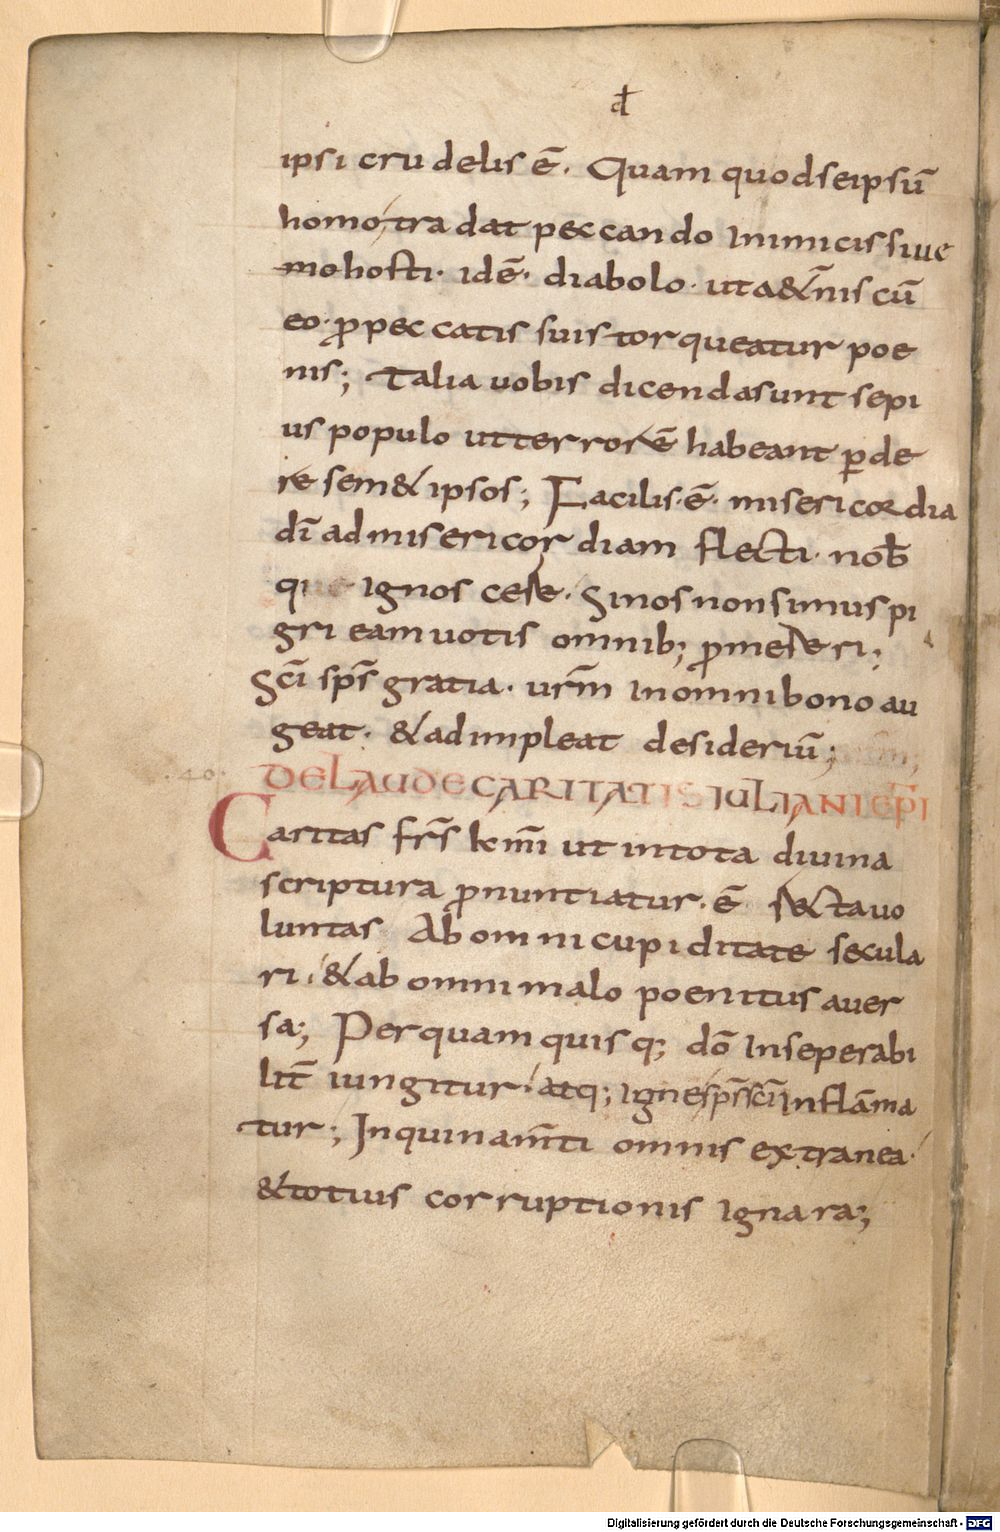 đ
ipsi crudelis ē. Quam quod seipsū
homo tradat peccando inimicissiue
mo hosti. idē. diabolo. ut a&̄nis cū
eo. ꝓ peccatis suis torqueatur poe
nis; Talia uobis dicenda sunt sepi
us populo ut terrorē habeant ꝑde
re sem& ipsos; Facilis. ē. misericordia
dī ad misericordiam flecti. nob̄
que ignoscese. Si nos non simus pi
gri eam uotis omnib; ꝓmereri;
Sc̄i sp̄s gratia. ur̄m in omni bono au
geat. & adimpleat desideriū;
40.
DE LAUDE CARITATIS IULIANI EP̄I
Caritas fr̄s k̄mi ut in tota diuina
scriptura ꝓnuntiatur. ē recta uo
luntas Ab omni cupiditate secula
ri. & ab omni malo poenitus auer
sa; Per quam quisq; dō inseperabi
lit̄ iungitur. atq; igne sp̄s sc̄i inflāma
tur; Inquinam̄ti omnis extranea.
& totius corruptionis ignara;
Digitalisierung gefördert durch die Deutsche Forschungsgemeinschaft - DFG